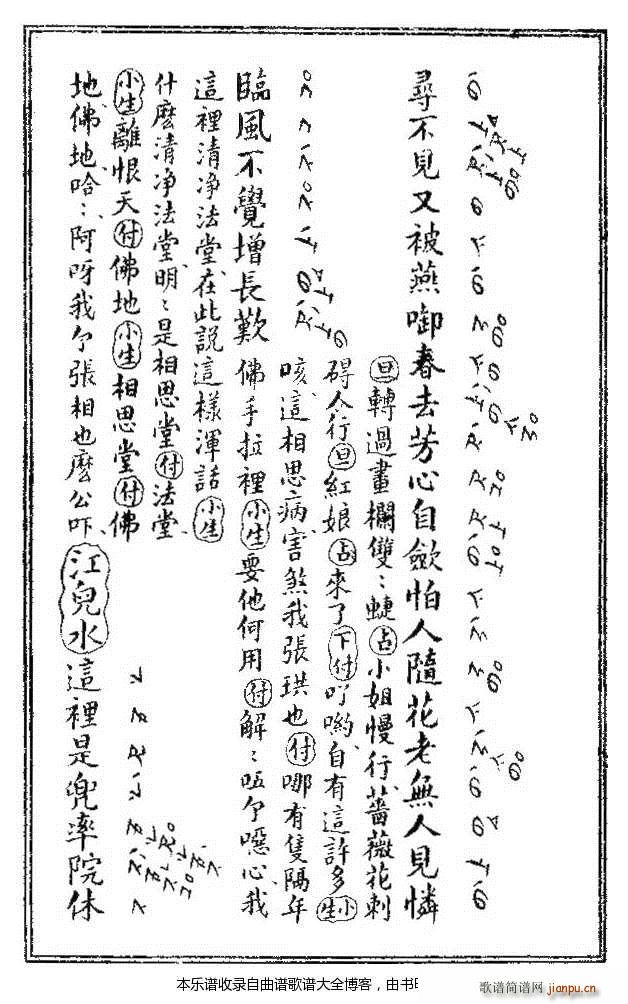 尋不見又被燕啣春去芳心自歛怕人隨花老無人見憐
旦轉過畫欄雙〻蜨占小姐慢行薔薇花刺
碍人行旦紅娘占來了下付吖喲自有這許多小生
咳這相思病害煞我張珙也付哪有隻隔年
臨風不覺增長歎佛手拉裡小生要他何用付解〻㕶个噁心我
這裡清净法堂在此説這樣渾話小生
什麽清净法堂明〻是相思堂付法堂
小生離恨天付佛地小生相思堂付佛
地佛地哈〻阿呀我个張相也麽公吓江兒水這裡是兜率院休
本乐谱收录自曲谱歌谱大全博客，由书
歌谱简谱网
jianpu.cn